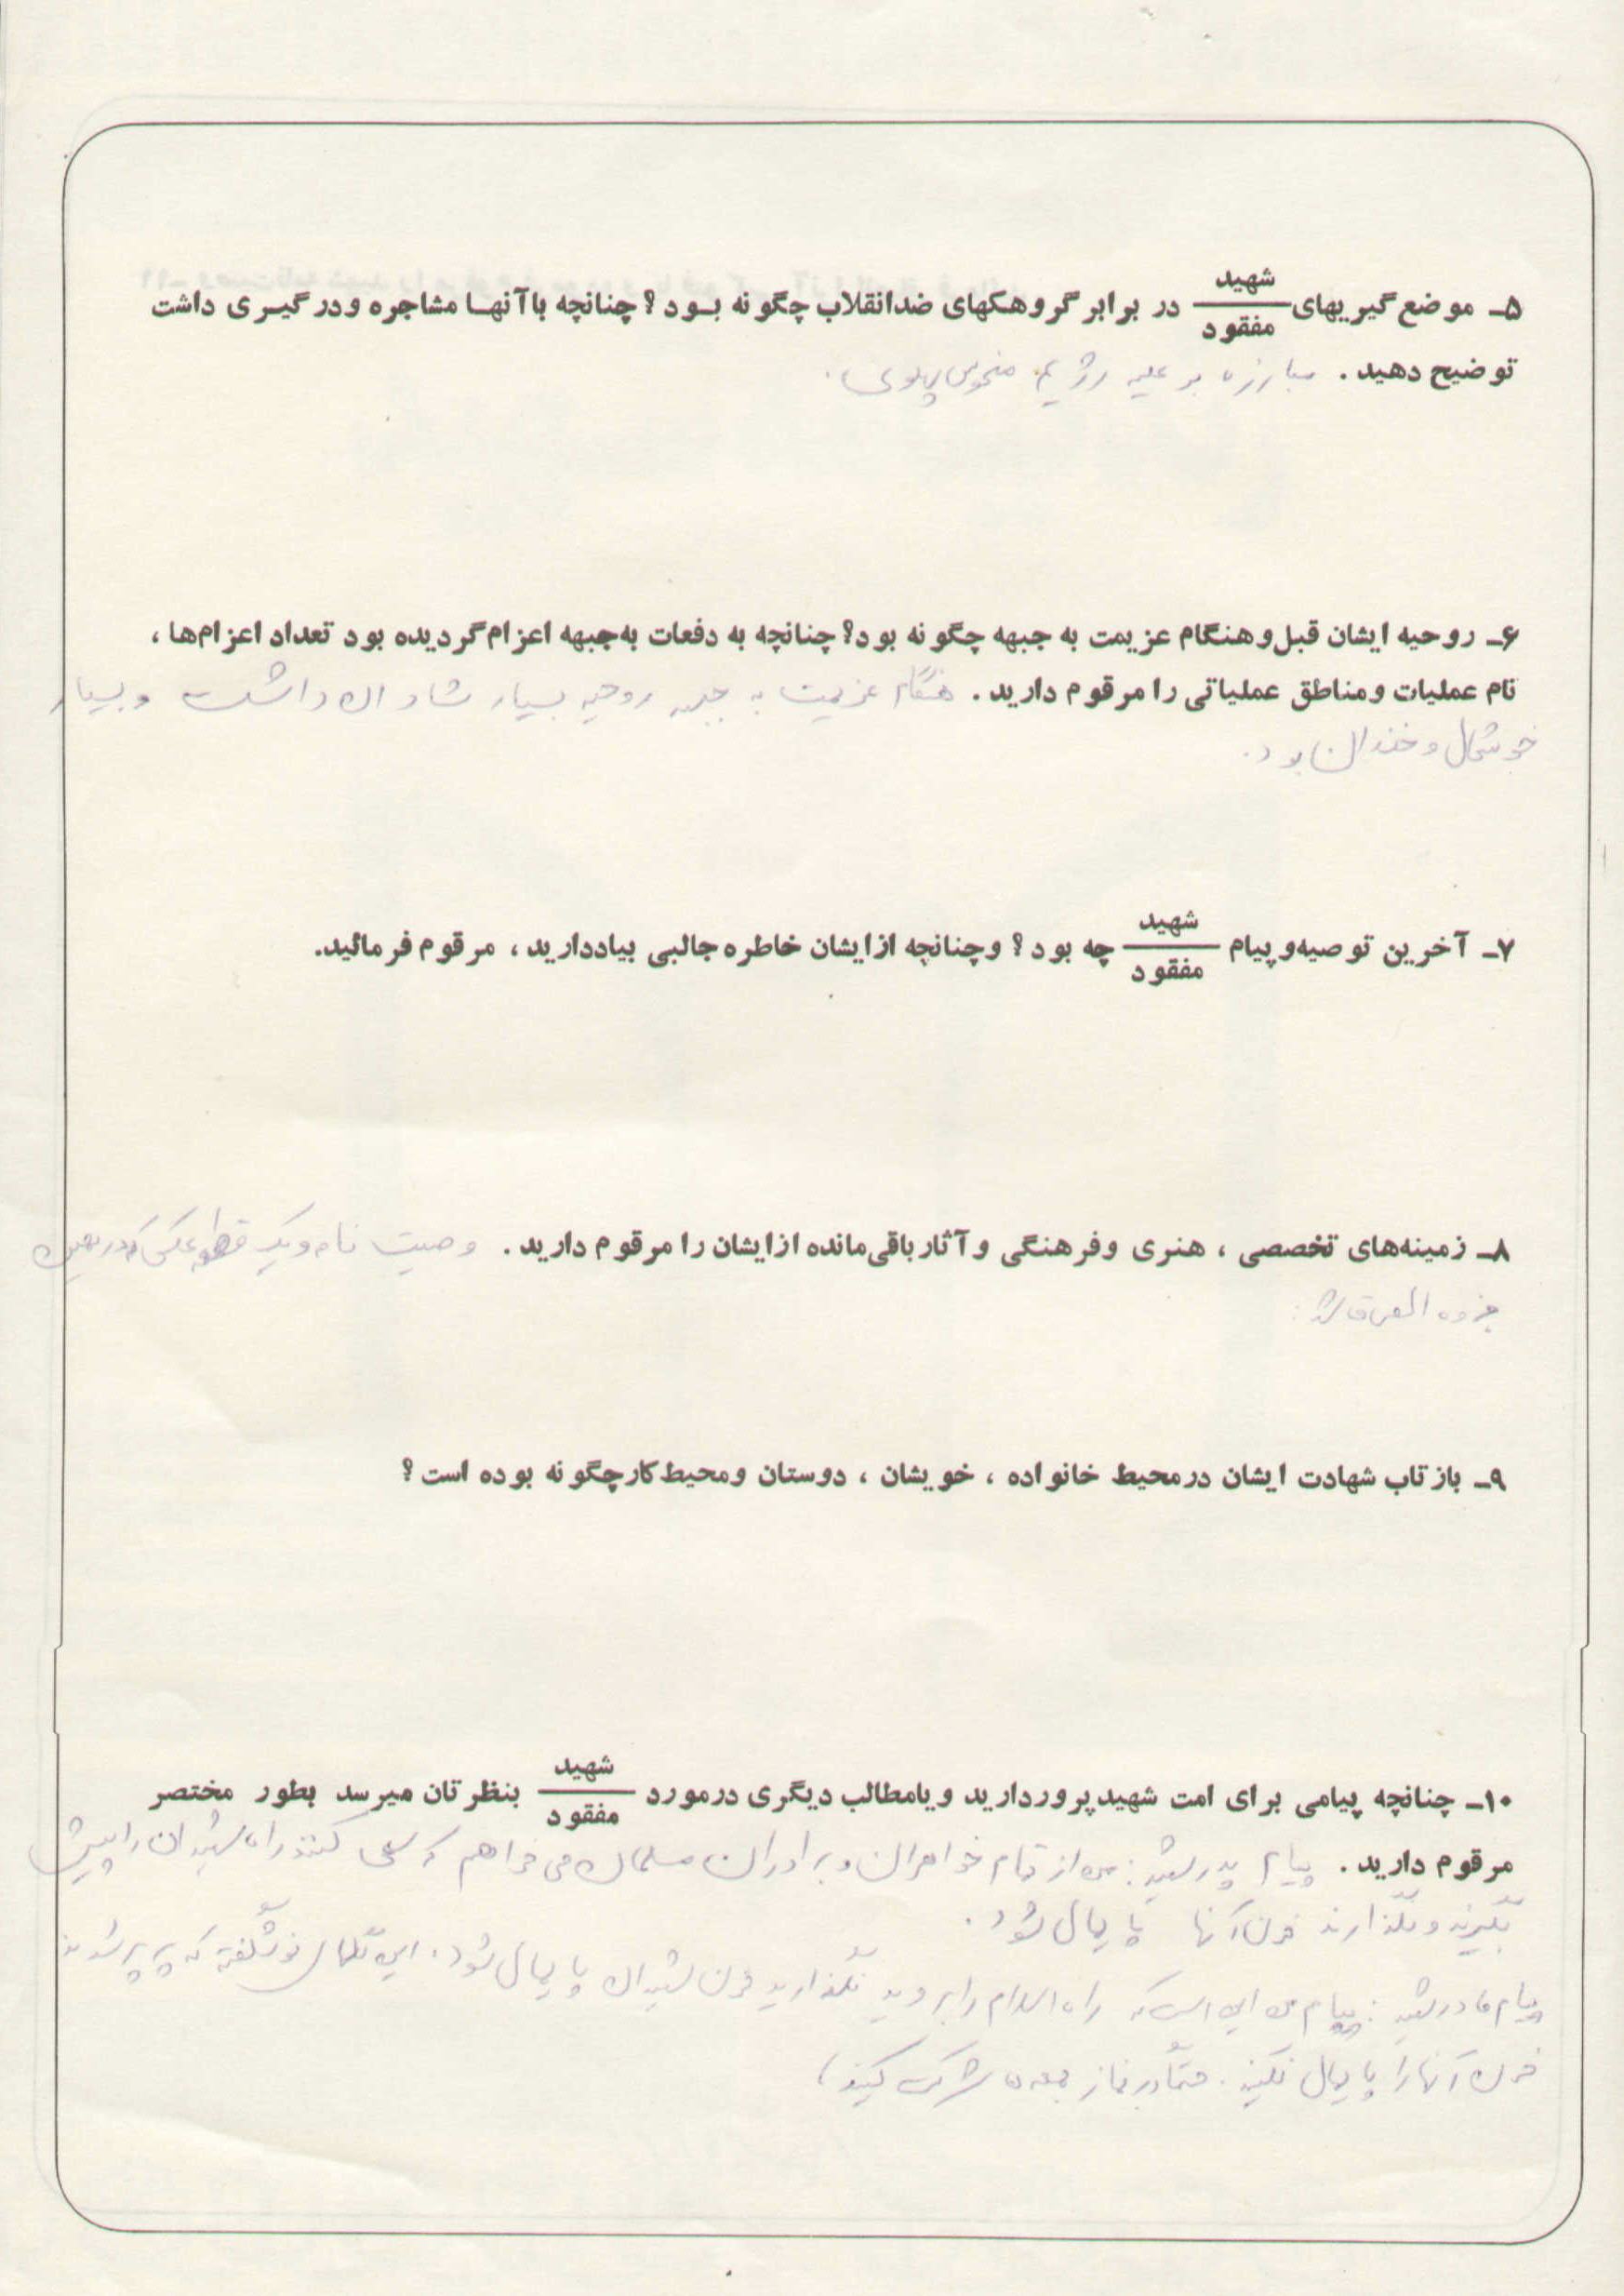 ۵ـ موضع گیریهای شهید / مفقود در برابر گروهکهای ضدانقلاب چگونه بود؟ چنانچه باآنها مشاجره ودرگیری داشت
توضیح دهید. مبارزه بر علیه رژیم منحوس پهلوی.
۶ـ روحیه ایشان قبل‌وهنگام عزیمت به جبهه چگونه بود؟ چنانچه به دفعات به‌جبهه اعزام‌گردیده بود تعداد اعزام‌ها،
نام عملیات ومناطق عملیاتی را مرقوم دارید. هنگام عزیمت به جبهه روحیه بسیار شاد داشت و بسیار
خوشحال و خندان بود.
۷ـ آخرین توصیه‌وپیام شهید / مفقود چه بود؟ وچنانچه ازایشان خاطره‌جالبی بیاددارید، مرقوم فرمائید.
۸ـ زمینه‌های تخصصی، هنری وفرهنگی وآثارباقی‌مانده ازایشان را مرقوم دارید. وصیت نامه و یک قطعه عکس که در همین
جزوه الصاق شد.
۹ـ بازتاب شهادت ایشان درمحیط خانواده، خویشان، دوستان ومحیط‌کارچگونه بوده است؟
۱۰ـ چنانچه پیامی برای امت شهیدپروردارید ویامطالب دیگری درمورد شهید / مفقود بنظرتان میرسد بطور مختصر
مرقوم دارید. پیام پدر شهید: من از تمام خواهران و برادران مسلمان می خواهم که سعی کنند راه شهیدان را پیش
بگیرند و نگذارند خون آنها پایمال شود.
پیام مادر شهید: پیام من این است که راه اسلام را بروید نگذارید خون شهیدان پایمال شود. این گلهای نوشگفته که پرپر شدند
خون آنها را پایمال نکنید. حتماً در نماز جمعه ها شرکت کنید